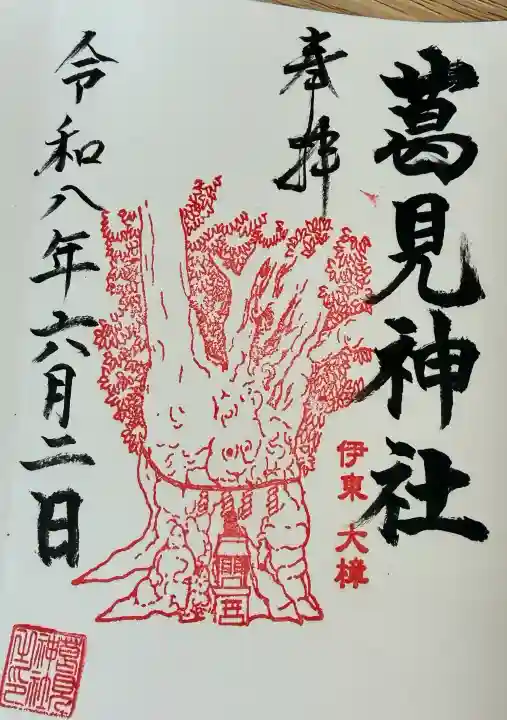 葛見神社
奉拝
伊東 大樟
令和八年六月二日
葛見
神社
之印